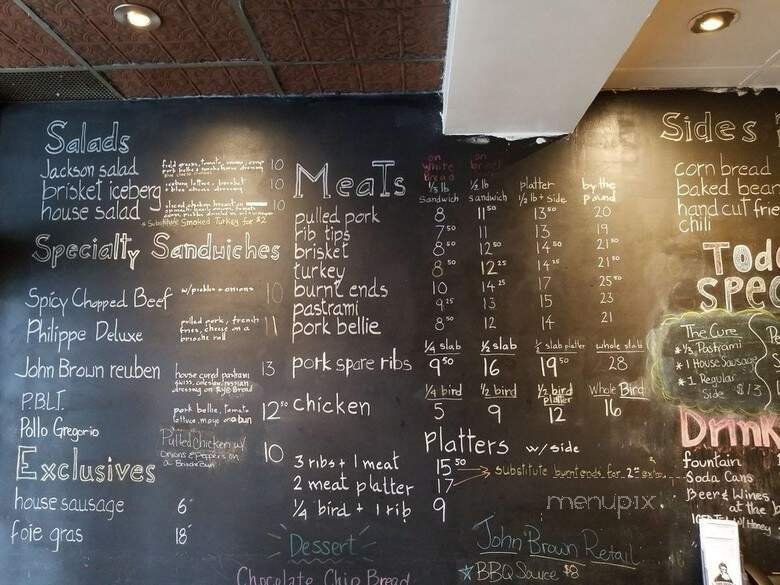 Salads
Jackson salad 10
brisket iceberg 10
iceberg lettuce, brisket
house salad 10
* Substitute Smoked Turkey for $2
Specialty Sandwiches
Spicy Chopped Beef w/pickles + onions 10
Philippe Deluxe 11
pulled pork, french
fries, cheese on a
brioche roll
John Brown reuben 13
house cured pastrami
swiss, coleslaw, russian
dressing on Rye Bread
P.B.L.T. 12⁵⁰
pork bellie, tomato
lettuce, mayo on a bun
Pollo Gregorio 10
Pulled Chicken w/
onions & peppers on
a
Exclusives
house sausage 6
foie gras 18
Meats
on white bread
1/3 lb sandwich
1/2 lb sandwich
platter
1/2 lb + side
by the pound
pulled pork 8 11⁵⁰ 13⁵⁰ 20
rib tips 7⁵⁰ 11 13 19
brisket 8⁵⁰ 12⁵⁰ 14⁵⁰ 21⁵⁰
turkey 8⁵⁰ 12²⁵ 14²⁵ 21⁵⁰
burnt ends 10 14²⁵ 17 25⁵⁰
pastrami 9²⁵ 13 15 23
pork bellie 8⁵⁰ 12 14 21
1/4 slab 1/2 slab 1/2 slab platter whole slab
pork spare ribs 9⁵⁰ 16 19⁵⁰ 28
1/4 bird 1/2 bird 1/2 bird platter Whole Bird
chicken 5 9 12 16
Platters w/side
3 ribs + 1 meat 15⁵⁰
2 meat platter 17
substitute burnt ends for
1/4 bird + 1 rib 9
Dessert
Chocolate Chip Bread
John Brown Retail
BBQ Sauce $8
Sides
corn bread
baked bean
hand cut frie
chili
Tod
spec
The Cure
* 1/3 Pastrami
* 1 House Sausage
* 1 Regular
Side $13
Drink
fountain
Soda Cans
Beer & Wines
at the b
Honey
menupix